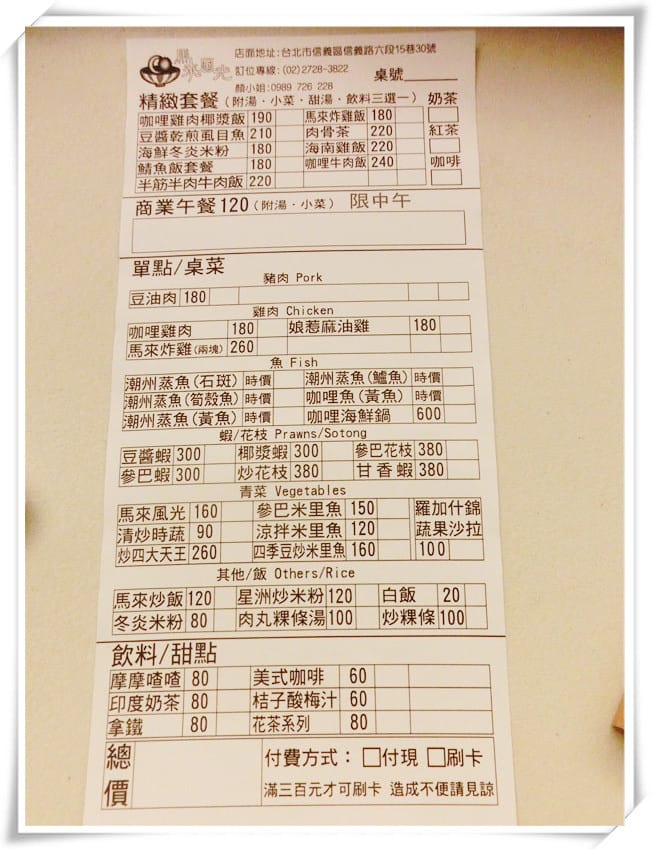 馬來風光
店面地址:台北市信義區信義路六段15巷30號
訂位專線:(02)2728-3822
顏小姐:0989 726 228
桌號
精緻套餐(附湯.小菜.甜湯.飲料三選一) 奶茶
咖哩雞肉椰漿飯 190 馬來炸雞飯 180
豆醬乾煎虱目魚 210 肉骨茶 220 紅茶
海鮮冬炎米粉 180 海南雞飯 220
鯖魚飯套餐 180 咖哩牛肉飯 240 咖啡
半筋半肉牛肉飯 220
商業午餐120(附湯.小菜) 限中午
單點/桌菜
豬肉 Pork
豆油肉 180
雞肉 Chicken
咖哩雞肉 180 娘惹麻油雞 180
馬來炸雞(兩塊) 260
魚 Fish
潮州蒸魚(石斑) 時價 潮州蒸魚(鱸魚) 時價
潮州蒸魚(筍殼魚) 時價 咖哩魚(黃魚) 時價
潮州蒸魚(黃魚) 時價 咖哩海鮮鍋 600
蝦/花枝 Prawns/Sotong
豆醬蝦 300 椰漿蝦 300 參巴花枝 380
參巴蝦 300 炒花枝 380 甘香蝦 380
青菜 Vegetables
馬來風光 160 參巴米里魚 150 羅加什錦
清炒時蔬 90 涼拌米里魚 120 蔬果沙拉
炒四大天王 260 四季豆炒米里魚 160 100
其他/飯 Others/Rice
馬來炒飯 120 星洲炒米粉 120 白飯 20
冬炎米粉 80 肉丸粿條湯 100 炒粿條 100
飲料/甜點
摩摩喳喳 80 美式咖啡 60
印度奶茶 80 桔子酸梅汁 60
拿鐵 80 花茶系列 80
總價 付費方式：□付現 □刷卡
滿三百元才可刷卡 造成不便請見諒